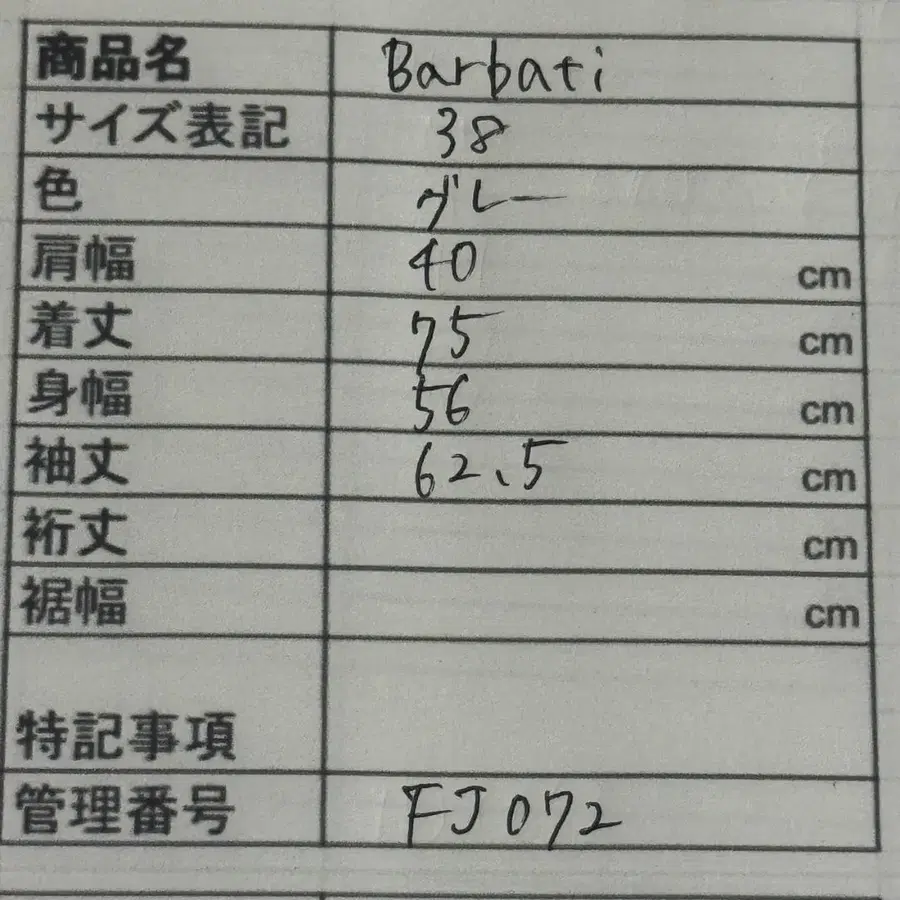 商品名 Barbati
サイズ表記 38
色 グレー
肩幅 40 cm
着丈 75 cm
身幅 56 cm
袖丈 62.5 cm
裄丈 cm
裾幅 cm
特記事項
管理番号 FJ072